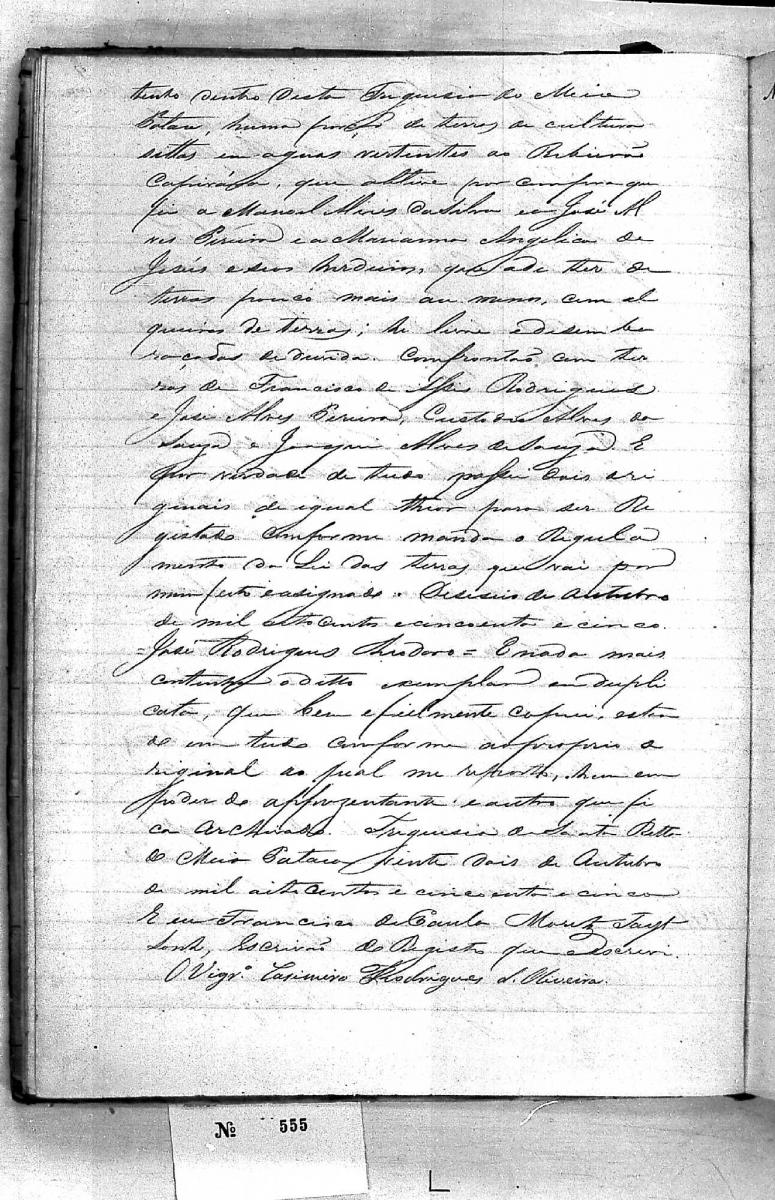 tenho dentro desta Freguesia do Meia
Pataca, huma porção de terras de cultura
sittas em aguas vertentes ao Ribeirão
Capivára, que obtive por compra que
fiz a Manoel Alves da Silva e a José Al
ves Pereira e a Marianna Angelica de
Jesús e seos herdeiros, que ade ter de
terras pouco mais ou menos, cem al
queires de terras; he livre e desemba
raçadas de duvida. Confrontão com ter
ras de Francisco de Assis Rodrigues
e José Alves Pereira, Custodio Alves de
Souza e Joaquim Alves de Souza E
por verdade de tudo passei dois ori
ginais de egual theor para ser Re
gistado conforme manda o Regula
mento da Lei das terras que vai por
mim feito e asignado. Deseseis de Outubro
de mil oitocentos e cincoenta e cinco.
=José Rodrigues Theodoro= E nada mais
continha o ditto exemplar em dupli
cata, que bem e fielmente copiei, estan
do em tudo conforme ao proprio o
riginal ao qual me reporto, hum em
poder do apprezentante e outro que fi
ca Archivado. Freguesia de Santa Ritta
do Meia Pataca vinte dois de Outubro
de mil oitocentos e cincoenta e cinco
E eu Francisco de Paula
Escrivão do Registro que o escrevi.
O Vigr.º Casimiro Rodrigues d. Oliveira.
Nº 555